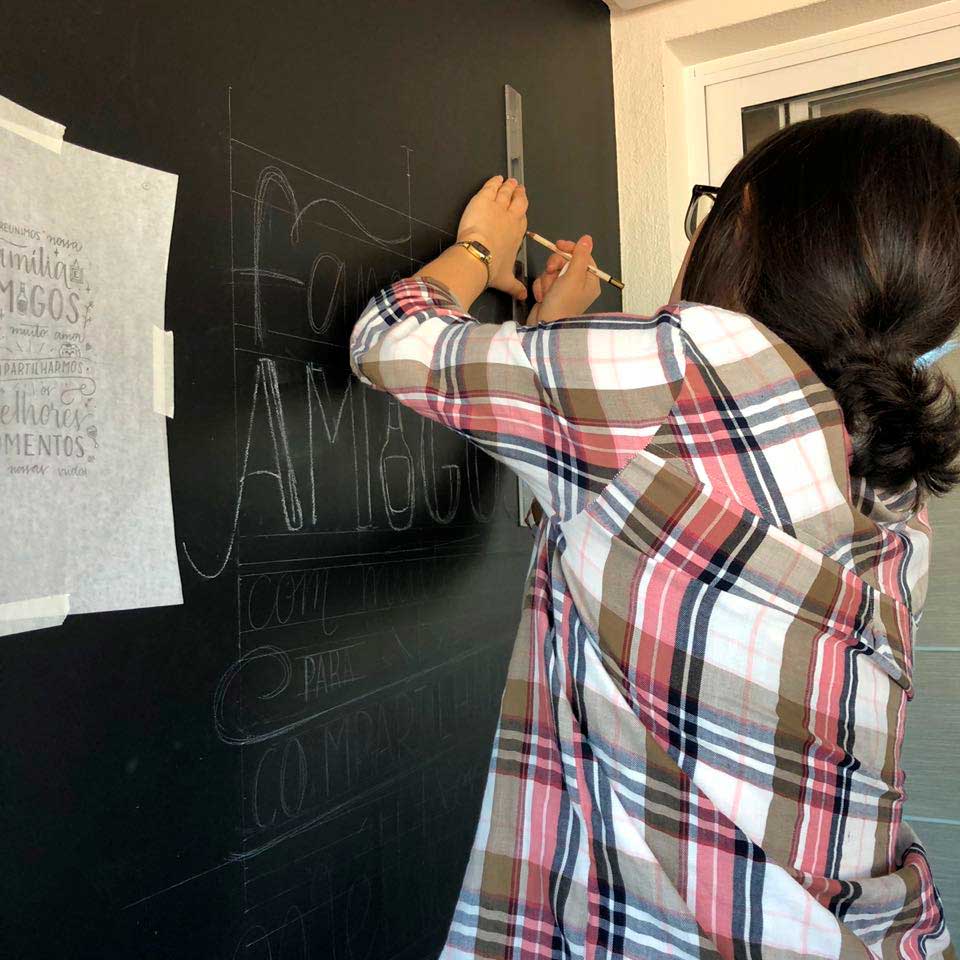 REUNIMOS nossa
amília
MIGOS
muito amor
PARTILHARMOS
os
elhores
OMENTOS
nossas vidas
Fam
AMIGO
com mu
PARA
COMPARTILHA